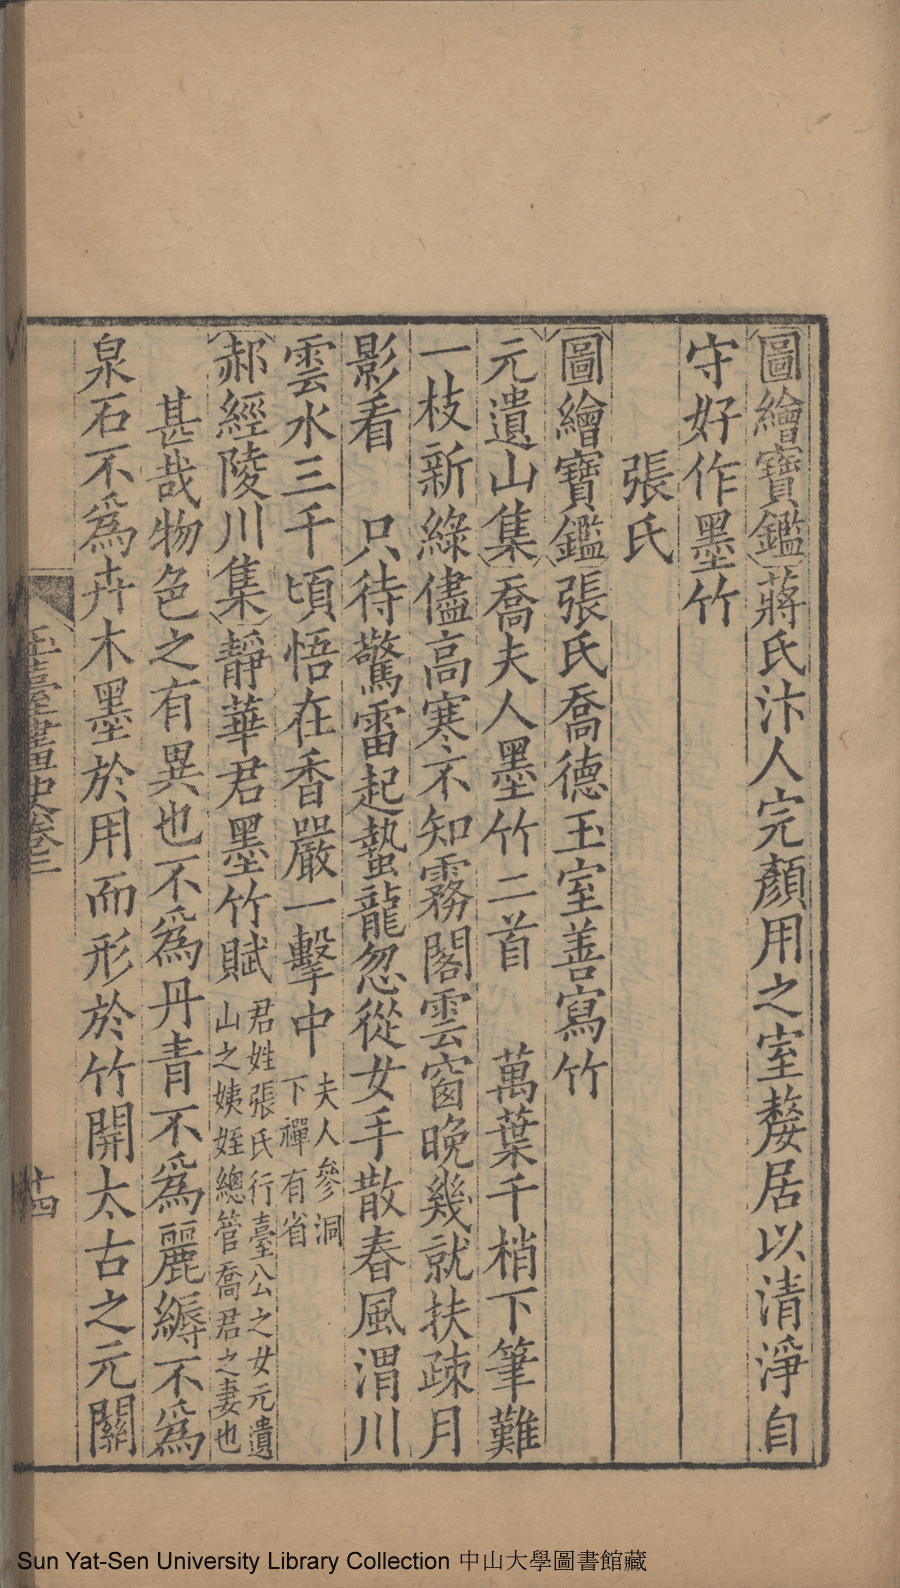 圖繪寶鑑蔣氏汴人完顏用之室嫠居以清淨自
守好作墨竹
張氏
圖繪寶鑑張氏喬德玉室善寫竹
元遺山集喬夫人墨竹二首　萬葉千梢下筆難
一枝新綠儘高寒不知霧閣雲窗晚幾就扶疎月
影看　只待驚雷起蟄龍忽從女手散春風渭川
雲水三千頃悟在香嚴一擊中夫人參洞
下禪有省
郝經陵川集靜華君墨竹賦君姓張氏行臺公之女元遺
山之姨姪總管喬君之妻也
甚哉物色之有異也不爲丹青不爲麗縟不爲
泉石不爲卉木墨於用而形於竹開太古之元關
玉臺畫史卷三
十四
Sun Yat-Sen University Library Collection 中山大學圖書館藏